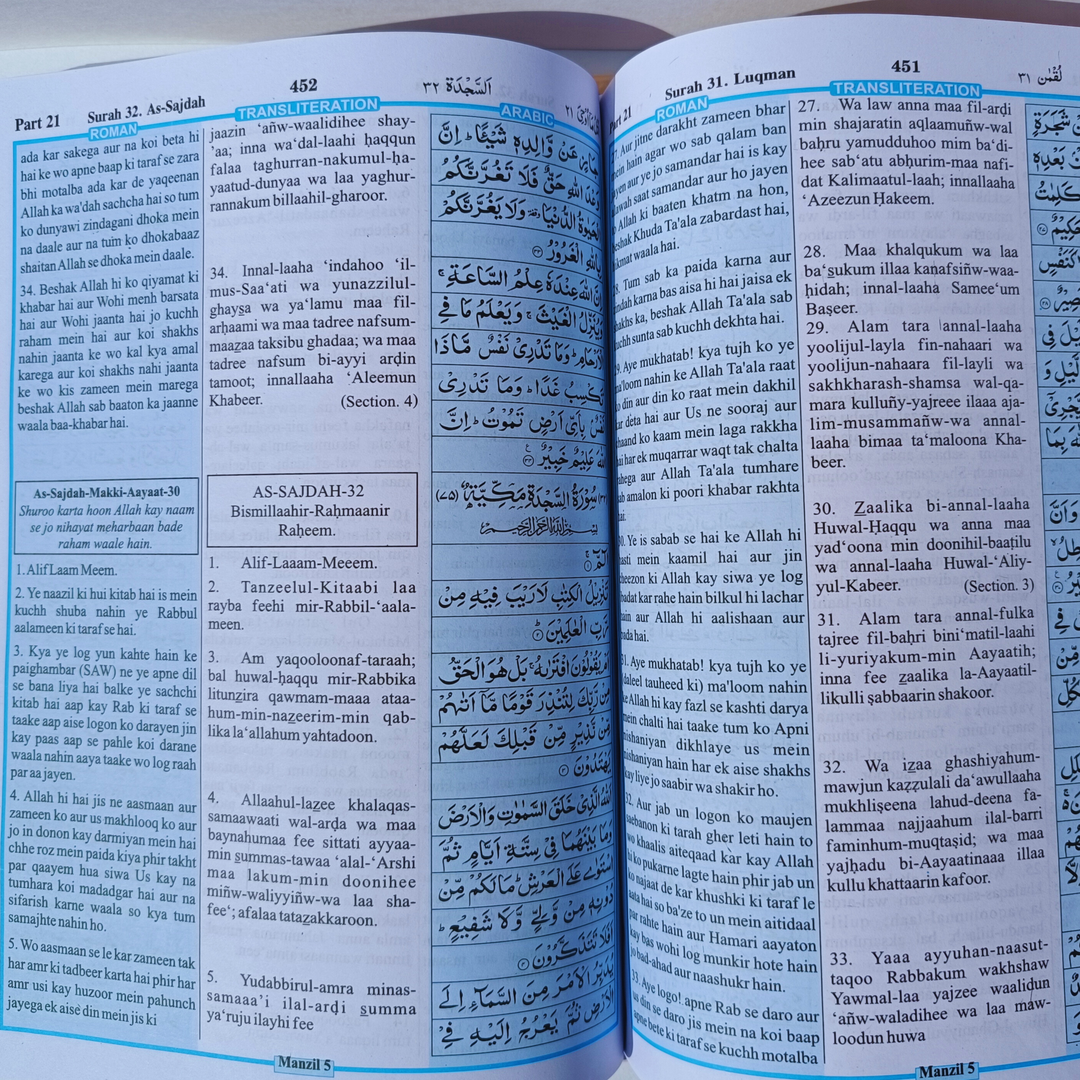 Part 21
Surah 32. As-Sajdah
452
اَلسَّجْدَة ٣٢
ROMAN
TRANSLITERATION
ARABIC
ada kar sakega aur na koi beta hi
hai ke wo apne baap ki taraf se zara
bhi motalba ada kar de yaqeenan
Allah ka wa'dah sachcha hai so tum
ko dunyawi zindagani dhoka mein
na daale aur na tum ko dhokabaaz
shaitan Allah se dhoka mein daale.
34. Beshak Allah hi ko qiyamat ki
khabar hai aur Wohi menh barsata
hai aur Wohi jaanta hai jo kuchh
raham mein hai aur koi shakhs
nahin jaanta ke wo kal kya amal
karega aur koi shakhs nahi jaanta
ke wo kis zameen mein marega
beshak Allah sab baaton ka jaanne
waala baa-khabar hai.
As-Sajdah-Makki-Aayaat-30
Shuroo karta hoon Allah kay naam
se jo nihayat meharbaan bade
raham waale hain.
1. Alif Laam Meem.
2. Ye naazil ki hui kitab hai is mein
kuchh shuba nahin ye Rabbul
aalameen ki taraf se hai.
3. Kya ye log yun kahte hain ke
paighambar (SAW) ne ye apne dil
se bana liya hai balke ye sachchi
kitab hai aap kay Rab ki taraf se
taake aap aise logon ko darayen jin
kay paas aap se pahle koi darane
waala nahin aaya taake wo log raah
par aa jayen.
4. Allah hi hai jis ne aasmaan aur
zameen ko aur us makhlooq ko aur
jo in donon kay darmiyan mein hai
chhe roz mein paida kiya phir takht
par qaayem hua siwa Us kay na
tumhara koi madadgar hai aur na
sifarish karne waala so kya tum
samajhte nahin ho.
5. Wo aasmaan se le kar zameen tak
har amr ki tadbeer karta hai phir har
amr usi kay huzoor mein pahunch
jayega ek aise din mein jis ki
jaazin ‘añw-waalidihee shay-
’aa; inna wa‘dal-laahi ḥaqqun
falaa taghurran-nakumul-ḥa-
yaatud-dunyaa wa laa yaghur-
rannakum billaahil-gharoor.
34. Innal-laaha ‘indahoo ‘il-
mus-Saa‘ati wa yunazzilul-
ghaysa wa ya‘lamu maa fil-
arḥaami wa maa tadree nafsum-
maazaa taksibu ghadaa; wa maa
tadree nafsum bi-ayyi arḍin
tamoot; innallaaha ‘Aleemun
Khabeer. (Section. 4)
AS-SAJDAH-32
Bismillaahir-Raḥmaanir
Raḥeem.
1. Alif-Laaam-Meeem.
2. Tanzeelul-Kitaabi laa
rayba feehi mir-Rabbil-‘aala-
meen.
3. Am yaqooloonaf-taraah;
bal huwal-ḥaqqu mir-Rabbika
litunẓira qawmam-maaa ataa-
hum-min-nazeerim-min qab-
lika la‘allahum yahtadoon.
4. Allaahul-lazee khalaqas-
samaawaati wal-arḍa wa maa
baynahumaa fee sittati ayyaa-
min summas-tawaa ‘alal-‘Arshi
maa lakum-min doonihee
miñw-waliyyiñw-wa laa sha-
fee‘; afalaa tatazakkaroon.
5. Yudabbirul-amra minas-
samaaa’i ilal-arḍi summa
ya‘ruju ilayhi fee
جَازٍ عَنْ وَّالِدِهٖ شَيْـًٔا ؕ اِنَّ
وَعْدَ اللّٰهِ حَقٌّ فَلَا تَغُرَّنَّكُمُ
الْحَيٰوةُ الدُّنْيَا ۥ وَلَا يَغُرَّنَّكُمْ
بِاللّٰهِ الْغَرُوْرُ ٣٣
اِنَّ اللّٰهَ عِنْدَهٗ عِلْمُ السَّاعَةِ ۚ
وَيُنَزِّلُ الْغَيْثَ ۚ وَيَعْلَمُ مَا فِي
الْاَرْحَامِ ؕ وَمَا تَدْرِيْ نَفْسٌ مَّاذَا
تَكْسِبُ غَدًا ؕ وَمَا تَدْرِيْ
نَفْسٌۢ بِاَيِّ اَرْضٍ تَمُوْتُ ؕ اِنَّ
اللّٰهَ عَلِيْمٌ خَبِيْرٌ ٣٤
(٣٢) سُوْرَةُ السَّجْدَةِ مَكِّيَّةٌ (٧٥)
بِسْمِ اللّٰهِ الرَّحْمٰنِ الرَّحِيْمِ
الٓمّٓ ١
تَنْزِيْلُ الْكِتٰبِ لَا رَيْبَ فِيْهِ مِنْ
رَّبِّ الْعٰلَمِيْنَ ٢
اَمْ يَقُوْلُوْنَ افْتَرٰىهُ ۚ بَلْ هُوَ الْحَقُّ
مِنْ رَّبِّكَ لِتُنْذِرَ قَوْمًا مَّاۤ اَتٰىهُمْ
مِّنْ نَّذِيْرٍ مِّنْ قَبْلِكَ لَعَلَّهُمْ
يَهْتَدُوْنَ ٣
اَللّٰهُ الَّذِيْ خَلَقَ السَّمٰوٰتِ وَالْاَرْضَ
وَمَا بَيْنَهُمَا فِيْ سِتَّةِ اَيَّامٍ ثُمَّ
اسْتَوٰى عَلَى الْعَرْشِ ؕ مَا لَكُمْ مِّنْ
دُوْنِهٖ مِنْ وَّلِيٍّ وَّلَا شَفِيْعٍ ؕ
اَفَلَا تَتَذَكَّرُوْنَ ٤
يُدَبِّرُ الْاَمْرَ مِنَ السَّمَآءِ اِلَى
الْاَرْضِ ثُمَّ يَعْرُجُ اِلَيْهِ فِيْ
Manzil 5
Part 21
Surah 31. Luqman
451
لُقْمٰن ٣١
ROMAN
TRANSLITERATION
27. Aur jitne darakht zameen bhar
mein hain agar wo sab qalam ban
jayen aur ye jo samandar hai is kay
ilawah saat samandar aur ho jayen
to Allah ki baaten khatm na hon,
beshak Khuda Ta'ala zabardast hai,
hikmat waala hai.
28. Tum sab ka paida karna aur
zindah karna bas aisa hi hai jaisa ek
shakhs ka, beshak Allah Ta'ala sab
kuchh sunta sab kuchh dekhta hai.
29. Aye mukhatab! kya tujh ko ye
ma'loom nahin ke Allah Ta'ala raat
ko din aur din ko raat mein dakhil
kar deta hai aur Us ne sooraj aur
chaand ko kaam mein laga rakkha
hai har ek muqarrar waqt tak chalta
rahega aur Allah Ta'ala tumhare
sab amalon ki poori khabar rakhta
hai.
30. Ye is sabab se hai ke Allah hi
hasti mein kaamil hai aur jin
cheezon ki Allah kay siwa ye log
ibadat kar rahe hain bilkul hi lachar
hain aur Allah hi aalishaan aur
bada hai.
31. Aye mukhatab! kya tujh ko ye
(daleel tauheed ki) ma'loom nahin
ke Allah hi kay fazl se kashti darya
mein chalti hai taake tum ko Apni
nishaniyan dikhlaye us mein
nishaniyan hain har ek aise shakhs
kay liye jo saabir wa shakir ho.
32. Aur jab un logon ko maujen
saebanon ki tarah gher leti hain to
wo khaalis aiteqaad kar kay Allah
hi ko pukarne lagte hain phir jab un
ko najaat de kar khushki ki taraf le
aata hai so ba'ze to un mein aitidaal
par rahte hain aur Hamari aayaton
kay bas wohi log munkir hote hain
jo bad-ahad aur naashukr hain.
33. Aye logo! apne Rab se daro aur
us din se daro jis mein na koi baap
apne bete ki taraf se kuchh motalba
27. Wa law anna maa fil-arḍi
min shajaratin aqlaamuñw-wal
baḥru yamudduhoo mim ba‘di-
hee sab‘atu abḥurim-maa nafi-
dat Kalimaatul-laah; innallaaha
‘Azeezun Ḥakeem.
28. Maa khalqukum wa laa
ba‘sukum illaa kanafsiñw-waa-
ḥidah; innal-laaha Samee‘um
Baṣeer.
29. Alam tara annal-laaha
yoolijul-layla fin-nahaari wa
yoolijun-nahaara fil-layli wa
sakhkharash-shamsa wal-qa-
mara kulluñy-yajreee ilaaa aja-
lim-musammañw-wa annal-
laaha bimaa ta‘maloona Kha-
beer.
30. Zaalika bi-annal-laaha
Huwal-Ḥaqqu wa anna maa
yad‘oona min doonihil-baaṭilu
wa annal-laaha Huwal-‘Aliy-
yul-Kabeer. (Section. 3)
31. Alam tara annal-fulka
tajree fil-baḥri bini‘matil-laahi
li-yuriyakum-min Aayaatih;
inna fee zaalika la-Aayaatil-
likulli ṣabbaarin shakoor.
32. Wa izaa ghashiyahum-
mawjun kaẓẓulali da‘awullaaha
mukhliṣeena lahud-deena fa-
lammaa najjaahum ilal-barri
faminhum-muqtaṣid; wa maa
yajḥadu bi-Aayaatinaaa illaa
kullu khattaarin kafoor.
33. Yaaa ayyuhan-naasut-
taqoo Rabbakum wakhshaw
Yawmal-laa yajzee waalidun
‘añw-waladihee wa laa maw-
loodun huwa
Manzil 5